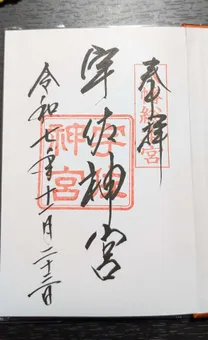 奉拝
宇佐神宮
宇佐
神宮
令和七年十一月二十三日